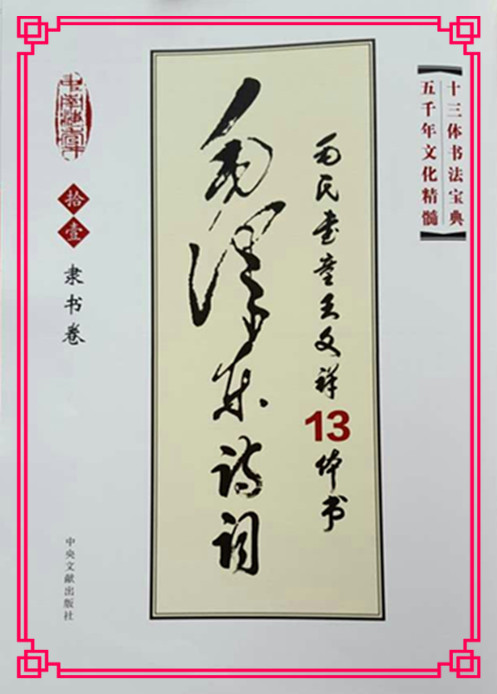 十三体书法宝典
五千年文化精髓
毛氏书童王文祥13体书
毛泽东诗词
拾壹
隶书卷
中央文献出版社